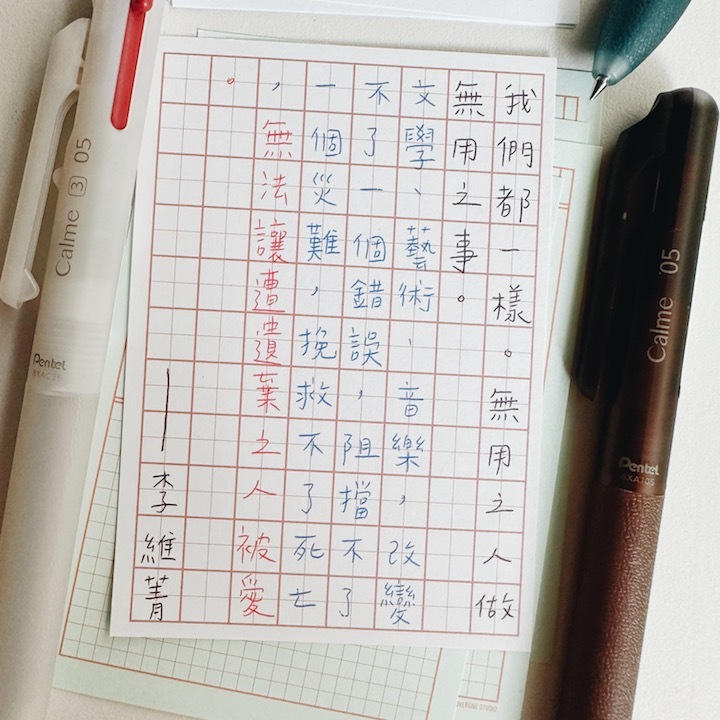 我們都一樣。無用之人做
無用之事。
文學、藝術、音樂，改變
不了一個錯誤，阻擋不了
一個災難，挽救不了死亡
，無法讓遭遺棄之人被愛
。
——李維菁
Calme 3 05
Pentel
Calme 05
Pentel
BXA105
STUDIO